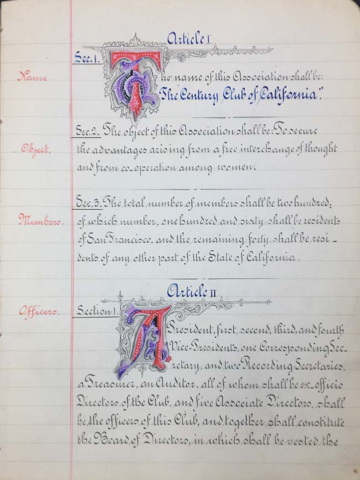 Article I.
Sec. 1.
Name
The name of this Association shall be
"The Century Club of California."
Sec. 2. The object of this Association shall be: To secure
Object.
the advantages arising from a free interchange of thought
and from co-operation among women.
Sec. 3. The total number of members shall be two hundred;
Members.
of which number, one hundred and sixty shall be residents
of San Francisco, and the remaining forty, shall be resi-
dents of any other part of the State of California.
Article II
Officers.
Section 1.
A President, first, second, third, and fourth
Vice-Presidents, one Corresponding Sec-
retary, and two Recording Secretaries,
a Treasurer, an Auditor, all of whom shall be ex-officio
Directors of the Club, and five Associate Directors, shall
be the officers of this Club, and together shall constitute
the Board of Directors, in which shall be vested the